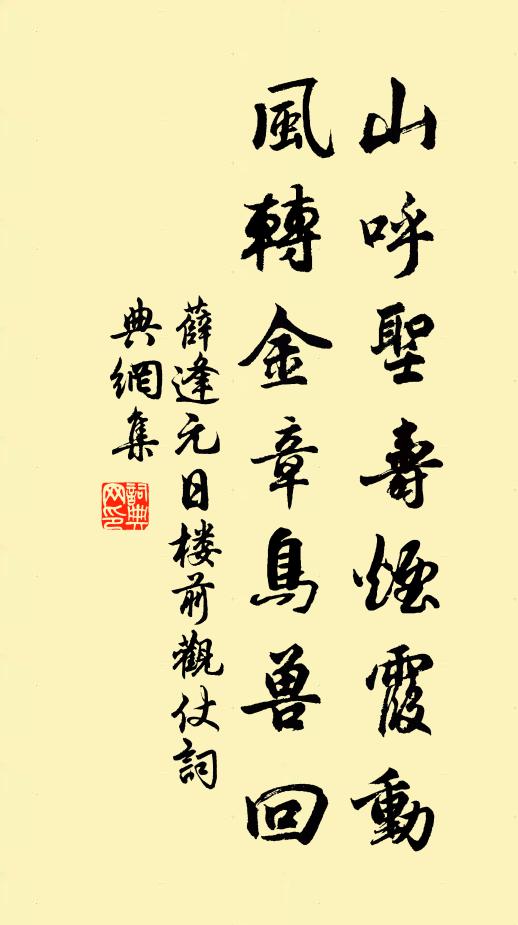 山呼聖壽煙霞動
風轉金章鳥獸回
薛逢元日楼前觀仗詞
典網集
詞典网印